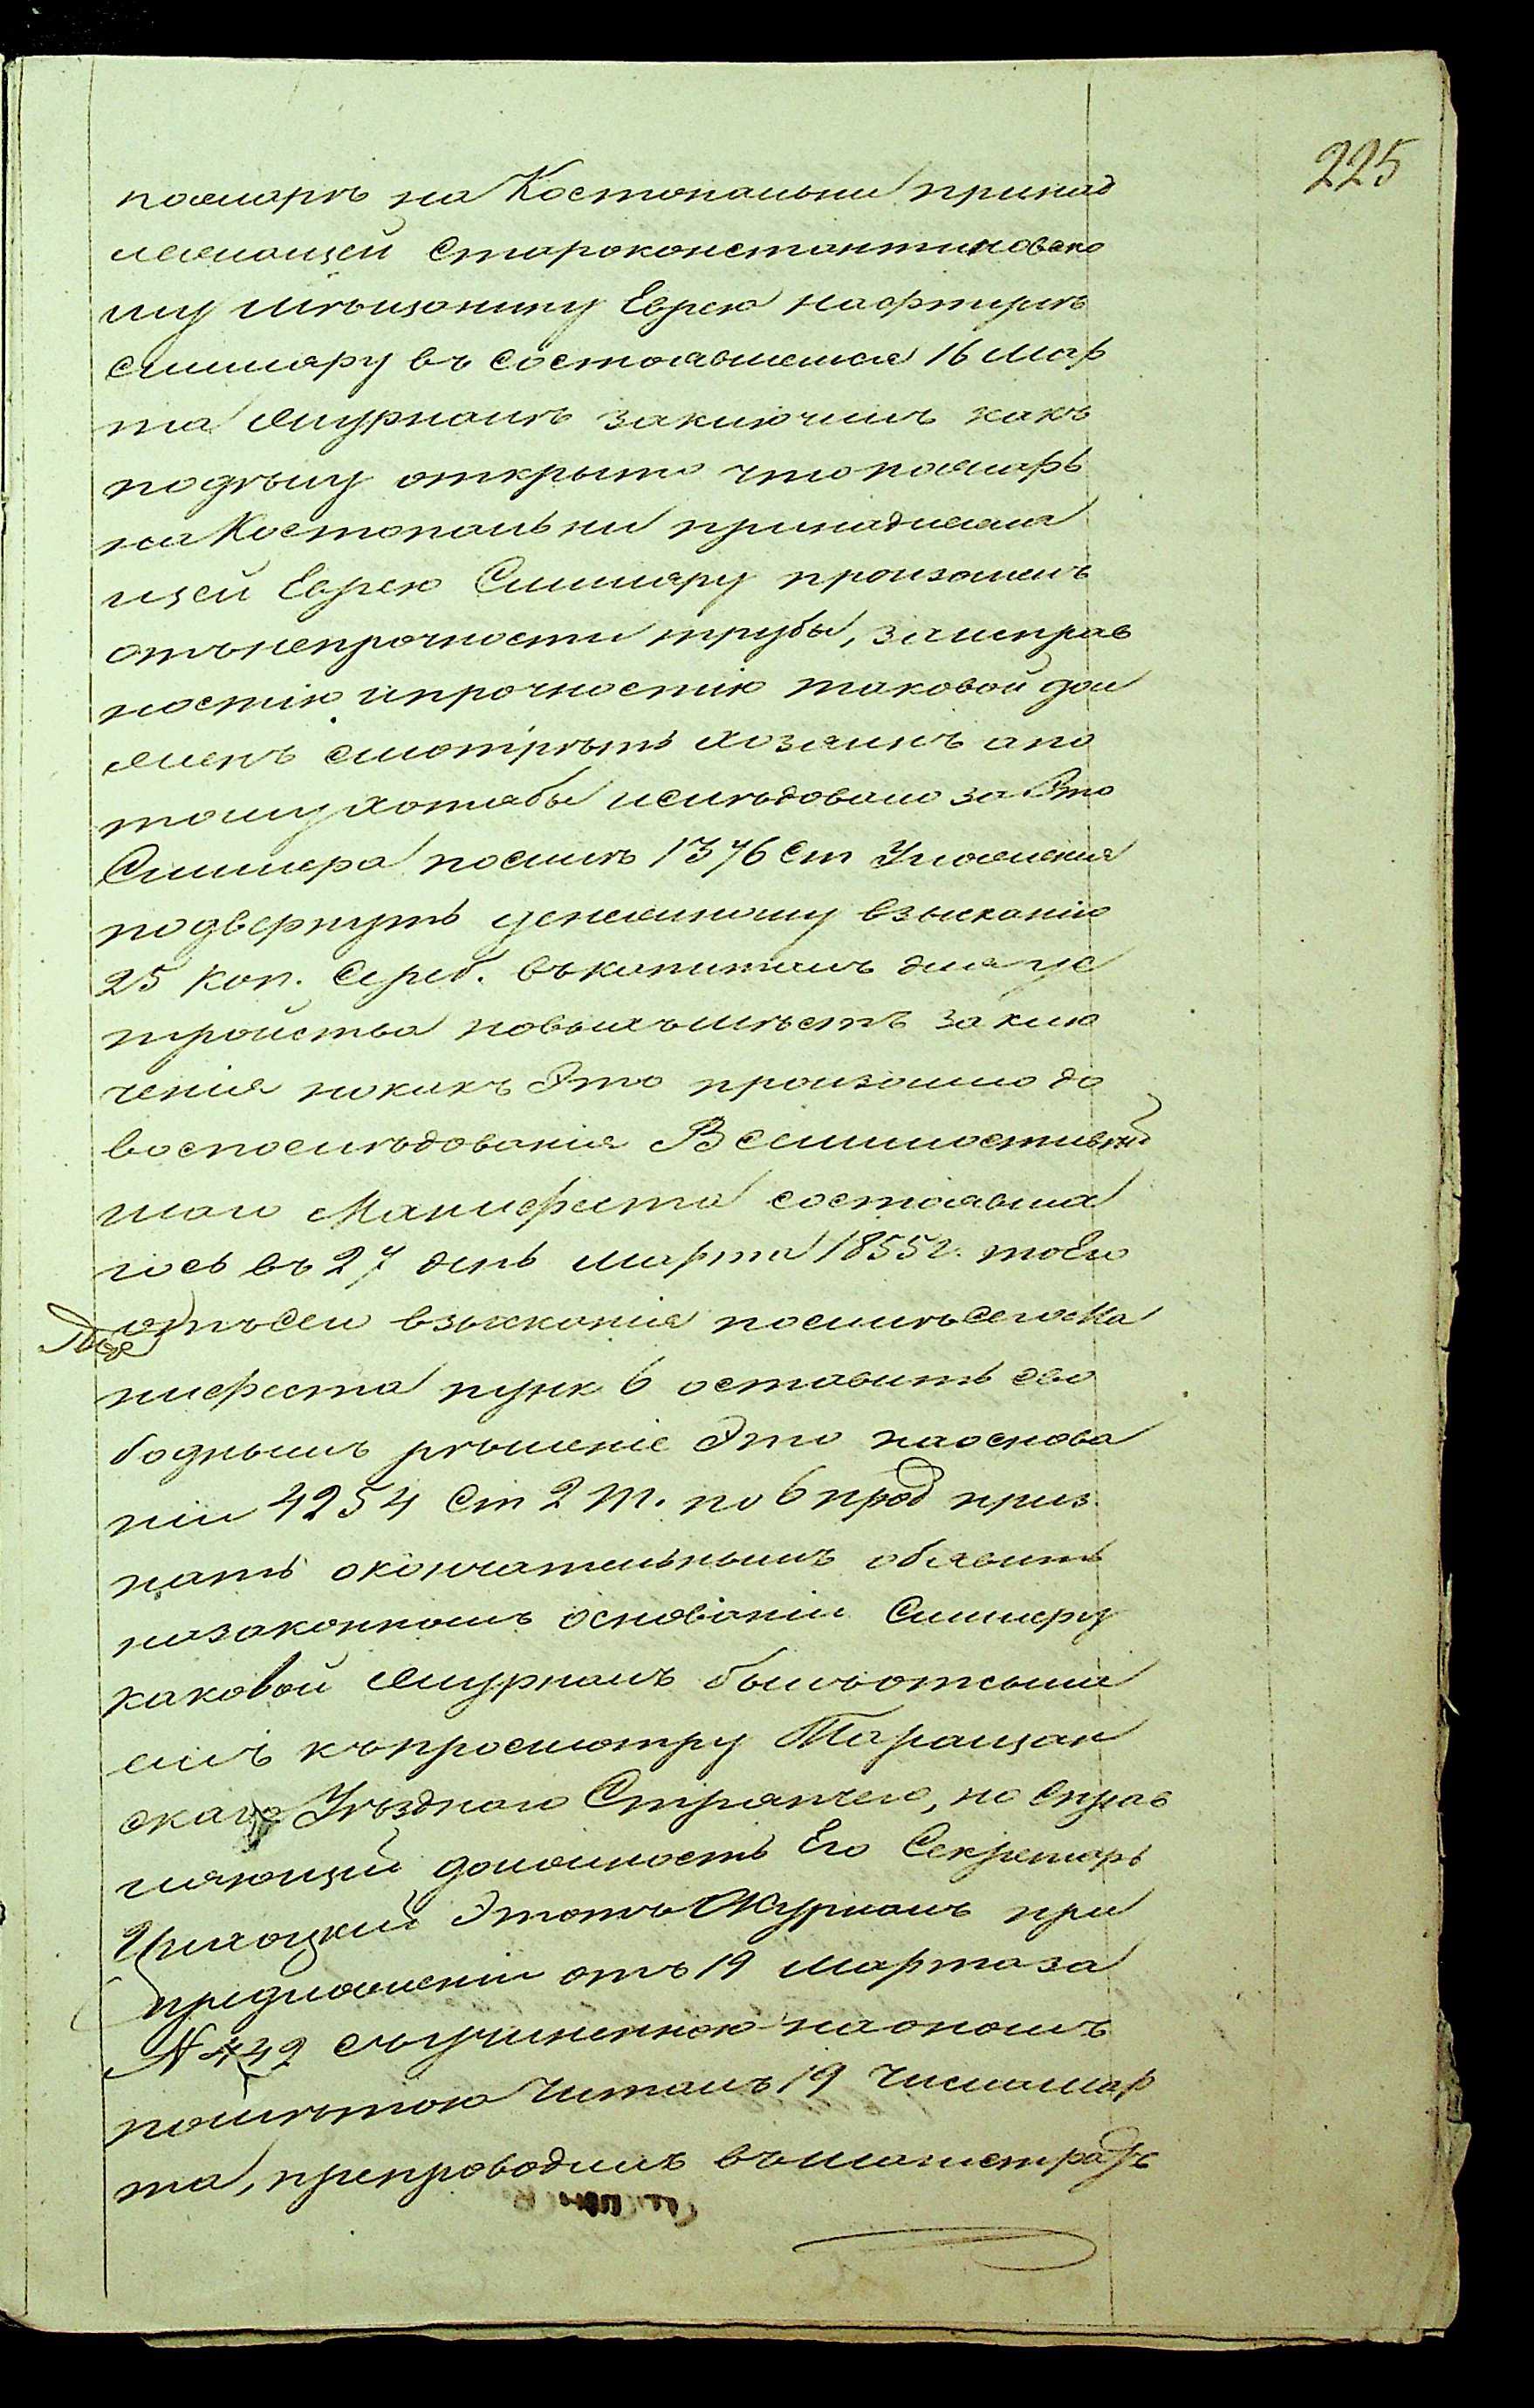 225
пожаръ на Костопальни принад
лежащей Староконстантиновско
му мѣщанину Еврею Нафтулѣ
Симмеру въ состоявшемся 16 Мар
та журналѣ заключилъ какъ
подѣлу открыто что пожаръ
на Костопальни принадлежа
щей Еврею Симмеру произошелъ
отънепрочности трубы, заисправ
ностію ипрочностію таковой дол
женъ смотрѣть хозяинъ апо
тому хотябы ислѣдовало за Это
Симмера посилѣ 1376 Ст Уложенія
подвергнуть денежному взысканію
25 коп. Сереб. въкапиталъ для ус
тройства новыхъмѣстъ заклю
ченія нокакъ Это произошло до
воспослѣдованія Всемилостивѣй
шаго Манифеста состоявша
гося въ 27 день марта 1855 г. тоЕго
отъсего взысканія посилѣсегоМа
нифеста пунк 6 оставить сво
боднымъ рѣшеніе Это наоснова
ніи 4254 Ст 2 Т. по 6 прод приз
нать окончательнымъ объявить
назаконномъ основаніи Симмеру
каковой журналъ былъотсыла
емъ къпросмотру Таращан
скаго Уѣзднаго Стряпчего, но Справ
ляющій должность Его Секретарь
Этотъ Журналъ при
предложеніи отъ 19 мартаза
N 442 съучиненною наономъ
помѣтою Читалъ 19 Числамар
та, препроводилъ въмагистратъ